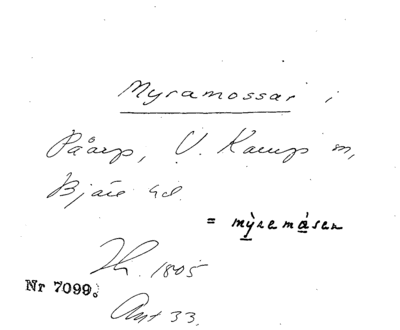 Myramossar i
Påarp, V. Karup sn,
Bjäre hd.
= mỳremåsen
Th. 1805
Nr 7099.
Ant 33.